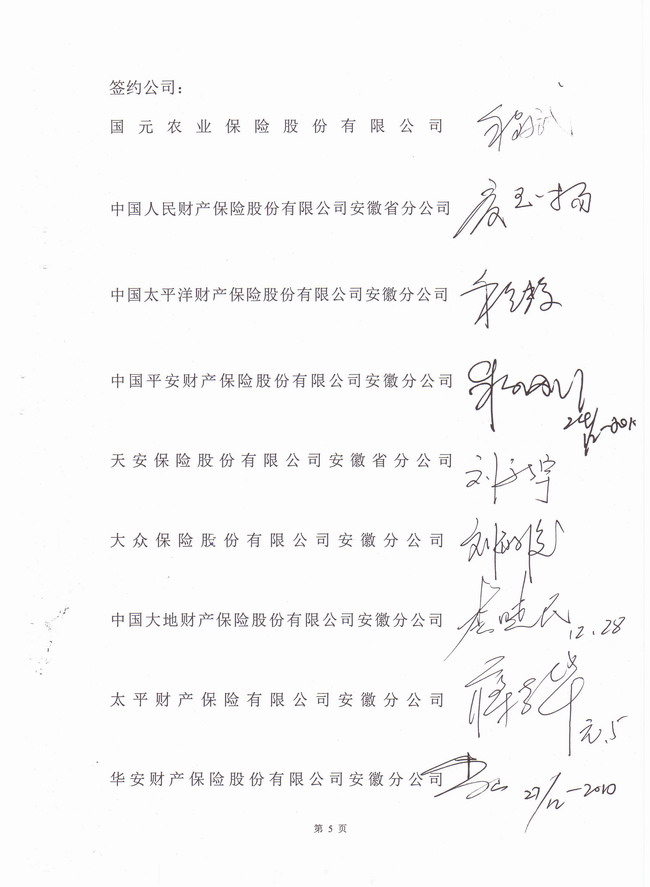 签约公司：
国元农业保险股份有限公司
中国人民财产保险股份有限公司安徽省分公司
中国太平洋财产保险股份有限公司安徽分公司
中国平安财产保险股份有限公司安徽分公司
天安保险股份有限公司安徽省分公司
大众保险股份有限公司安徽分公司
中国大地财产保险股份有限公司安徽分公司
12.28
太平财产保险有限公司安徽分公司
华安财产保险股份有限公司安徽分公司 27/12-2010
第 5 页